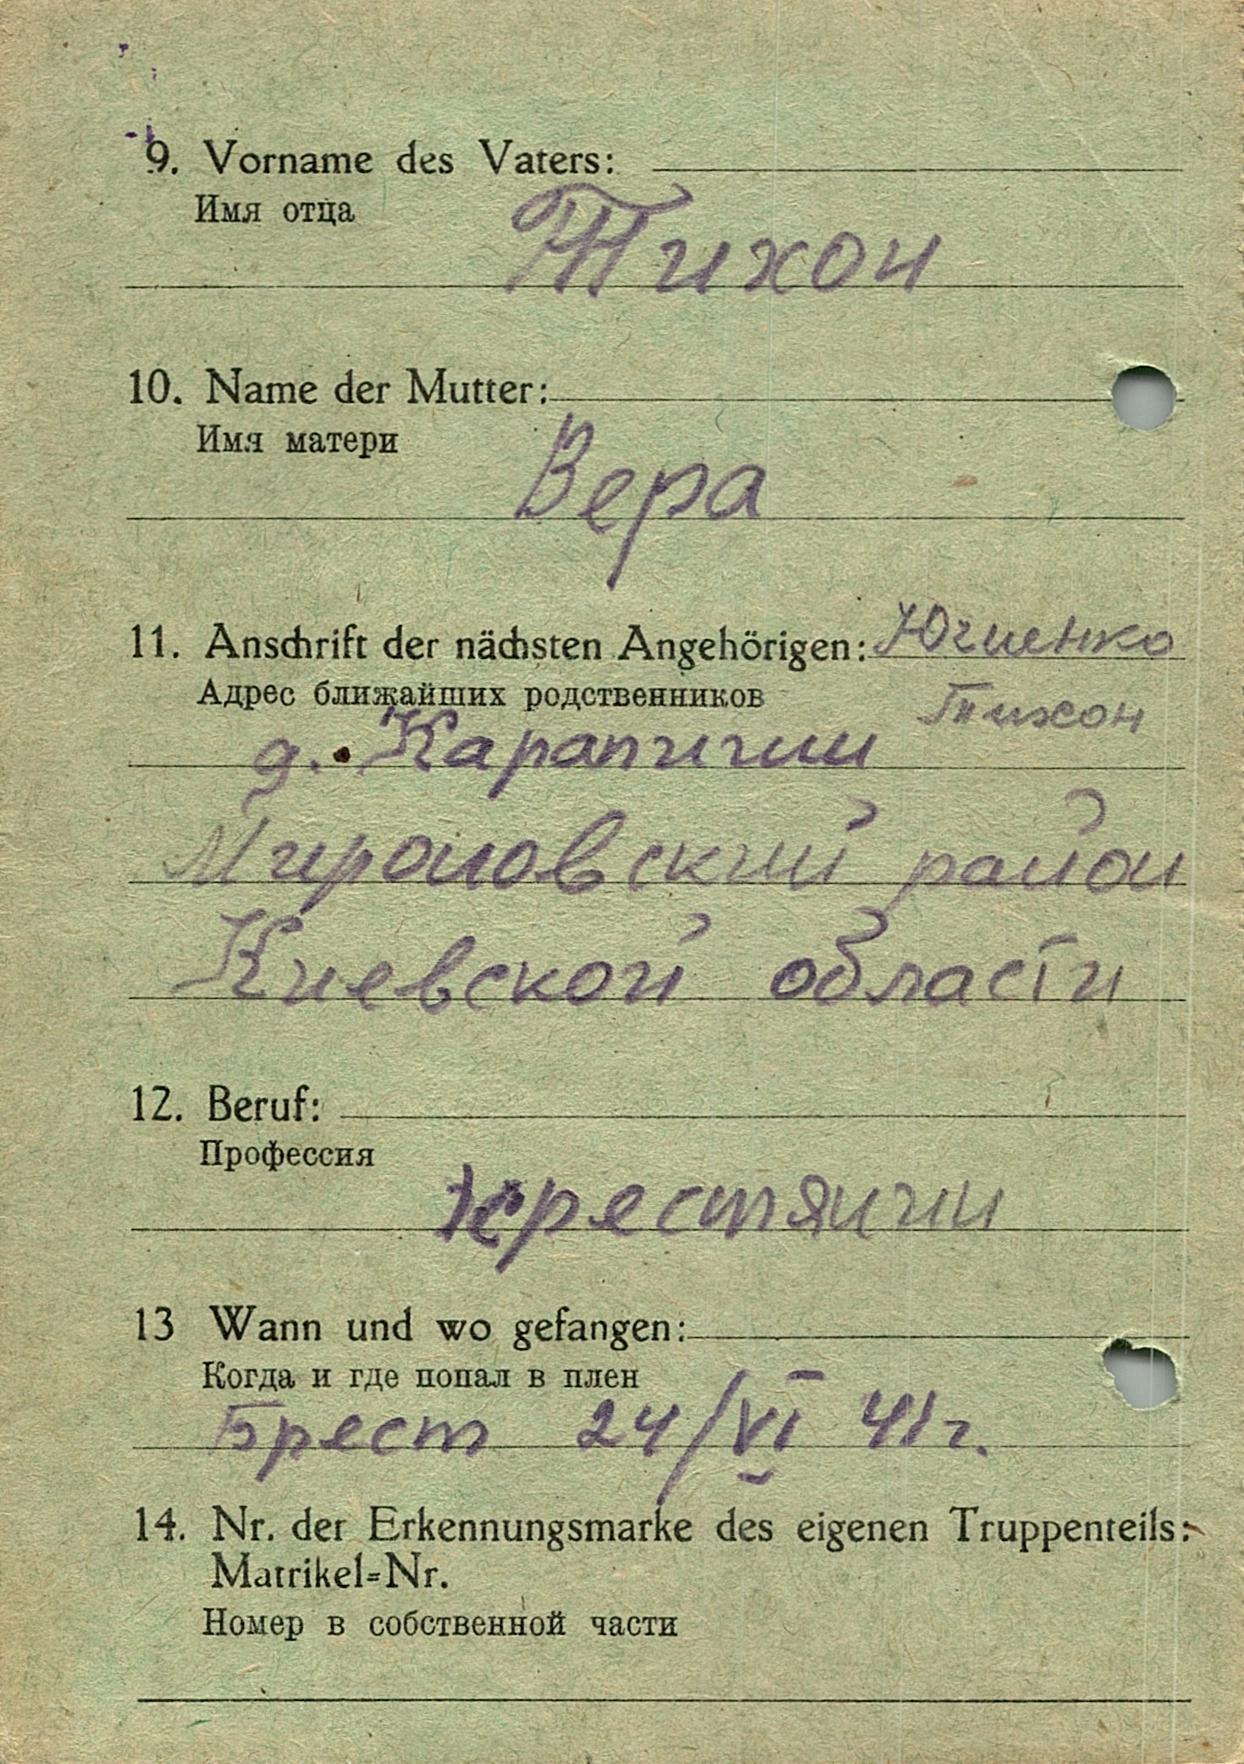 9. Vorname des Vaters:
Имя отца
Тихон
10. Name der Mutter:
Имя матери
Вера
11. Anschrift der nächsten Angehörigen:
Адрес ближайших родственников
Тихон
д. Карапиши
Мироновский район
Киевской области
12. Beruf:
Профессия
крестянин
13 Wann und wo gefangen:
Когда и где попал в плен
Брест 24/VI 41г.
14. Nr. der Erkennungsmarke des eigenen Truppenteils:
Matrikel=Nr.
Номер в собственной части